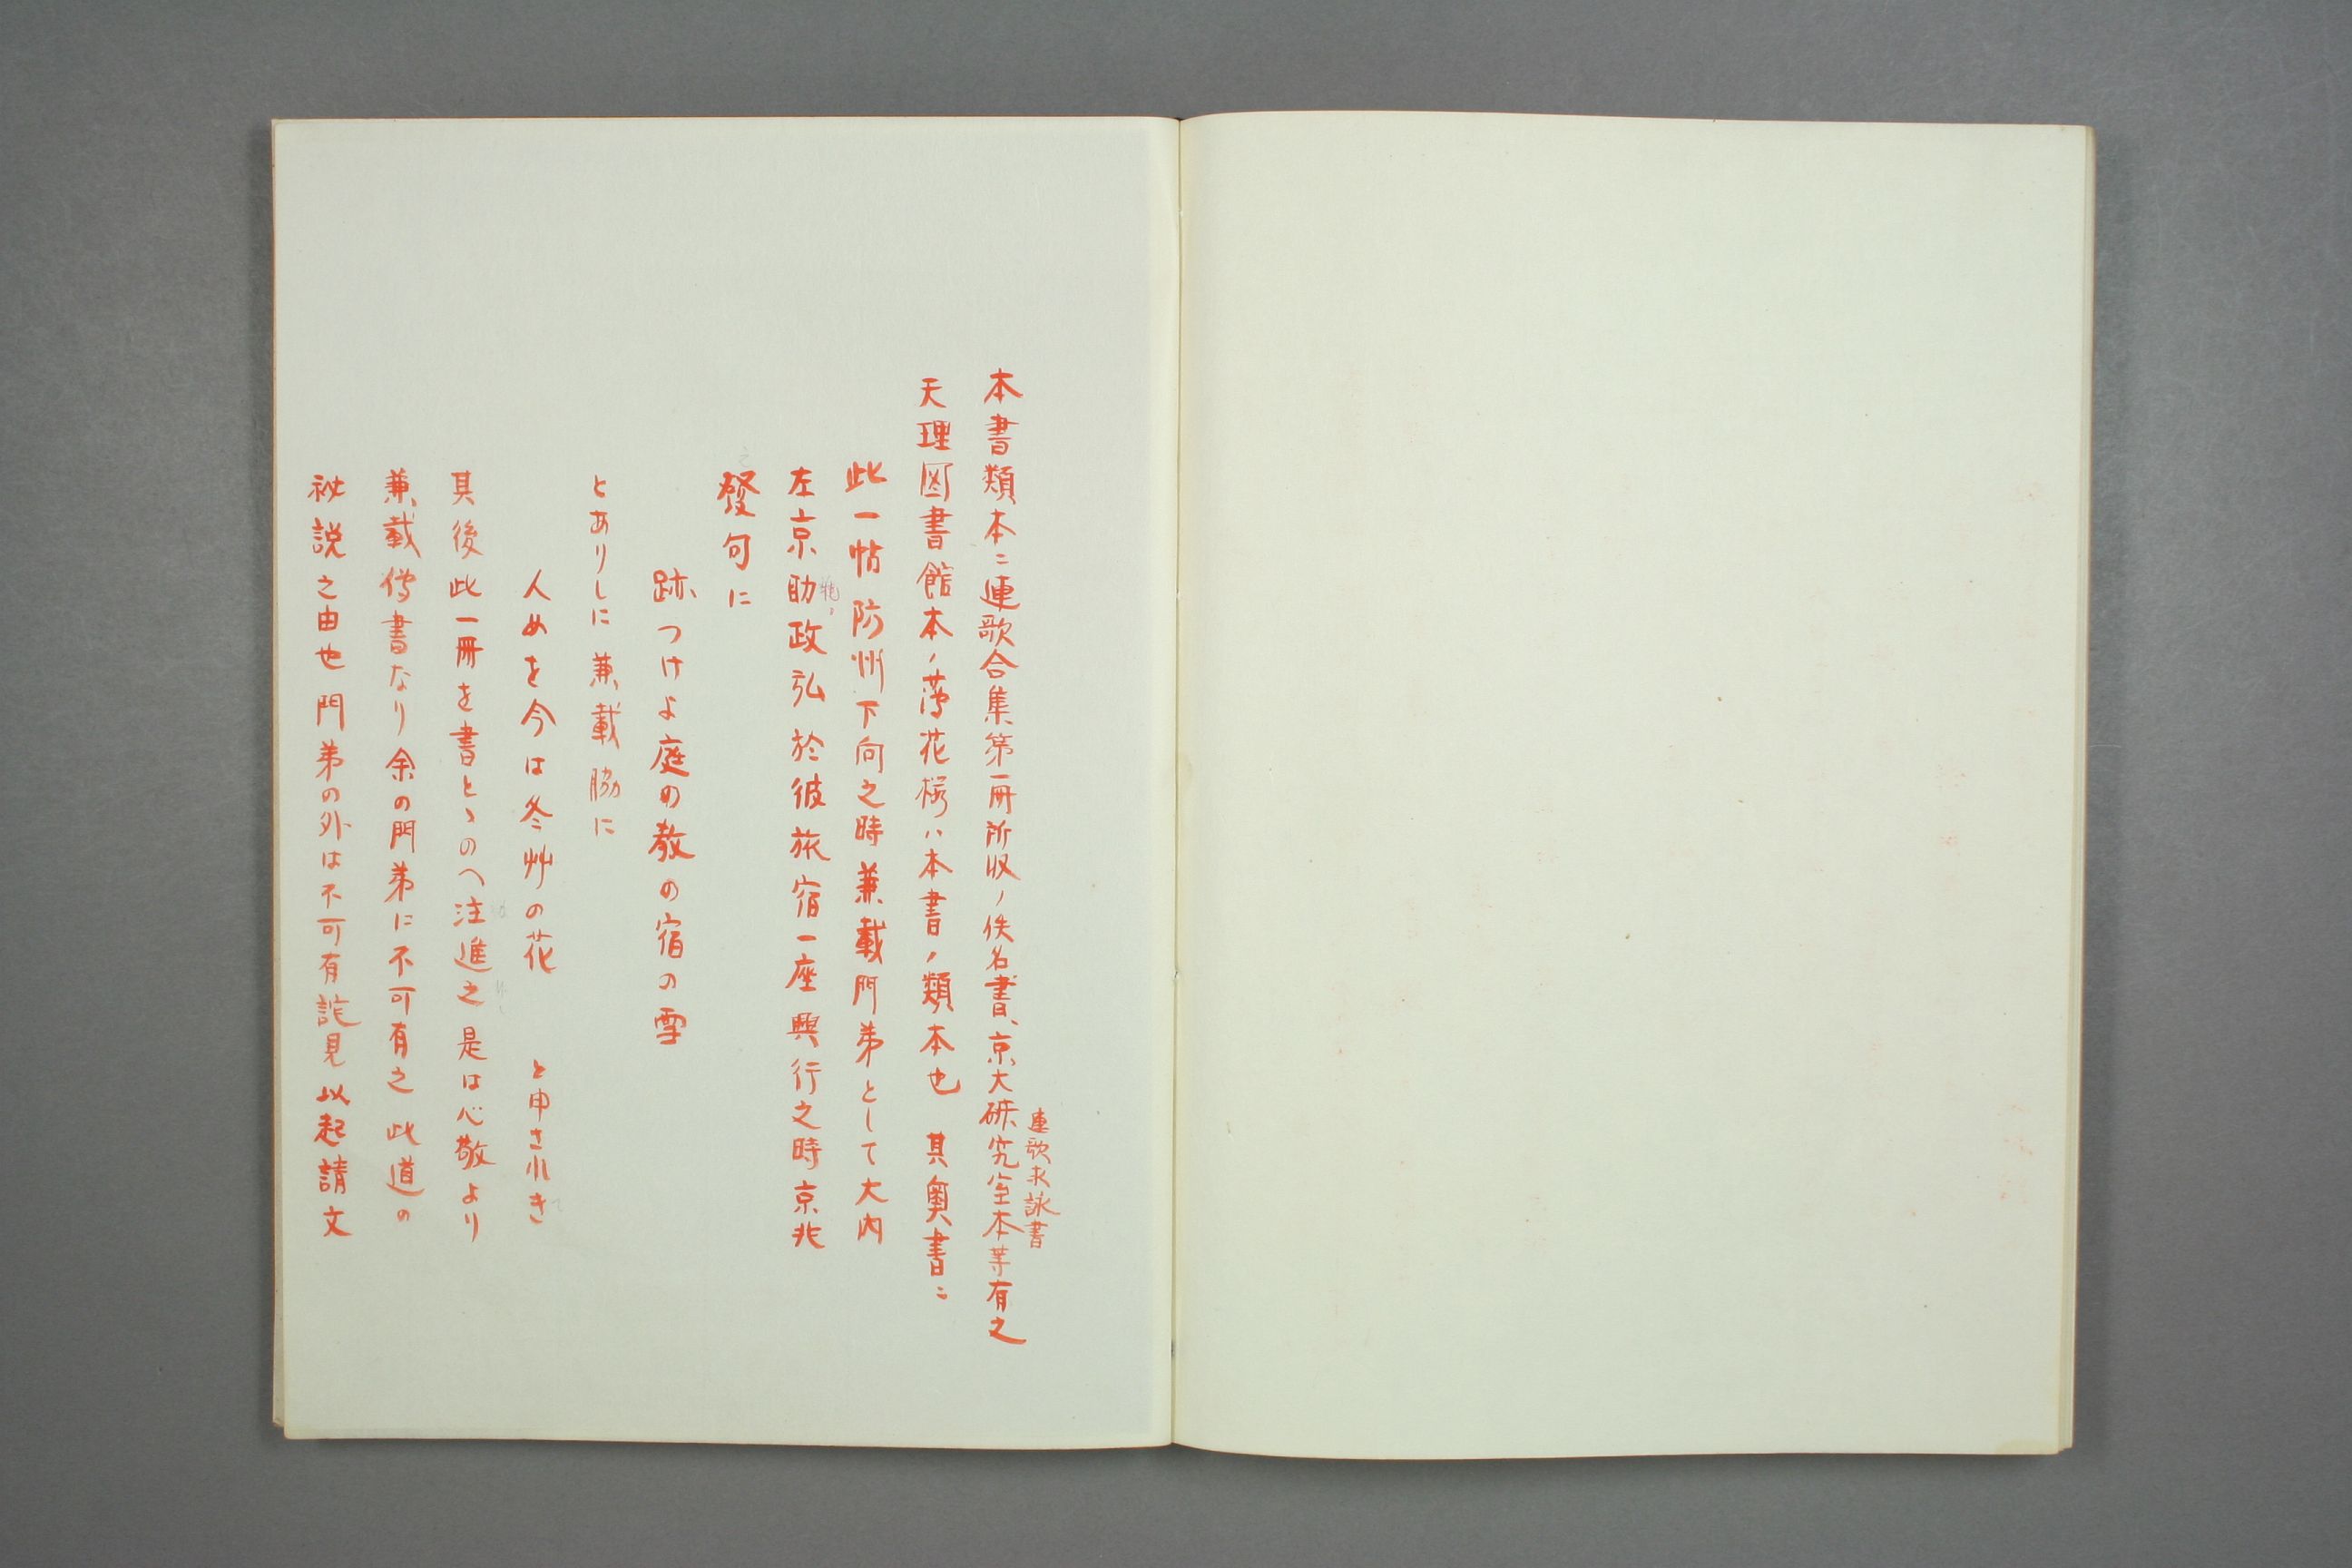 本書類本ニ連歌合集第一冊所収ノ佚名書、京大研究室本等有之
連歌求詠書
天理図書館本ノ薄花桜ハ本書ノ類本也 其奥書ニ
此一帖防州下向之時兼載門弟として大内
左京助政弘於彼旅宿一座興行之時京兆
發句に
跡つけよ庭の教の宿の雪
とありしに兼載脇に
人めを今は冬艸の花 と申されき
其後此一冊を書とゝのへ注進之是は心敬より
兼載傳書なり余の門弟に不可有之此道の
祕説之由也門弟の外は不可有詫見以起請文